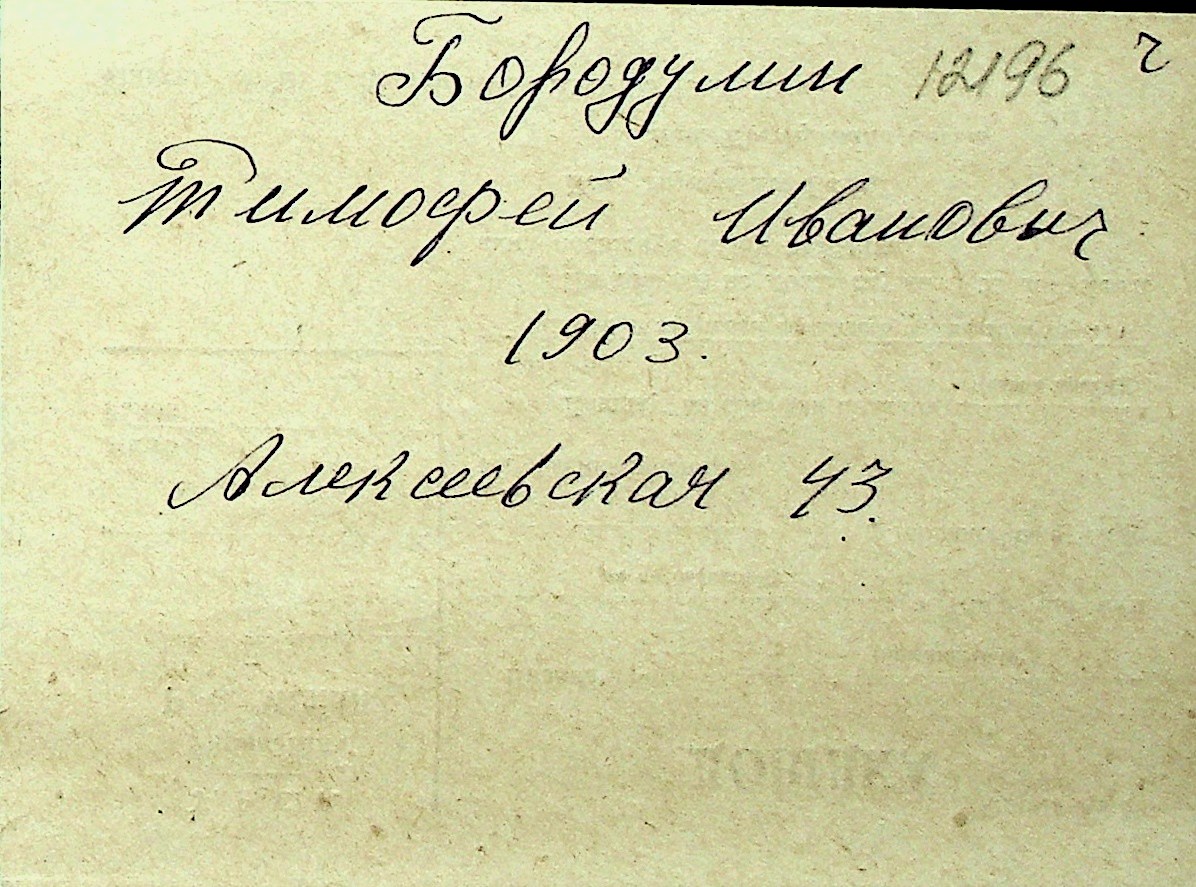 Бородулин 12196 ч
Тимофей Иванович
1903.
Алексеевская 43.